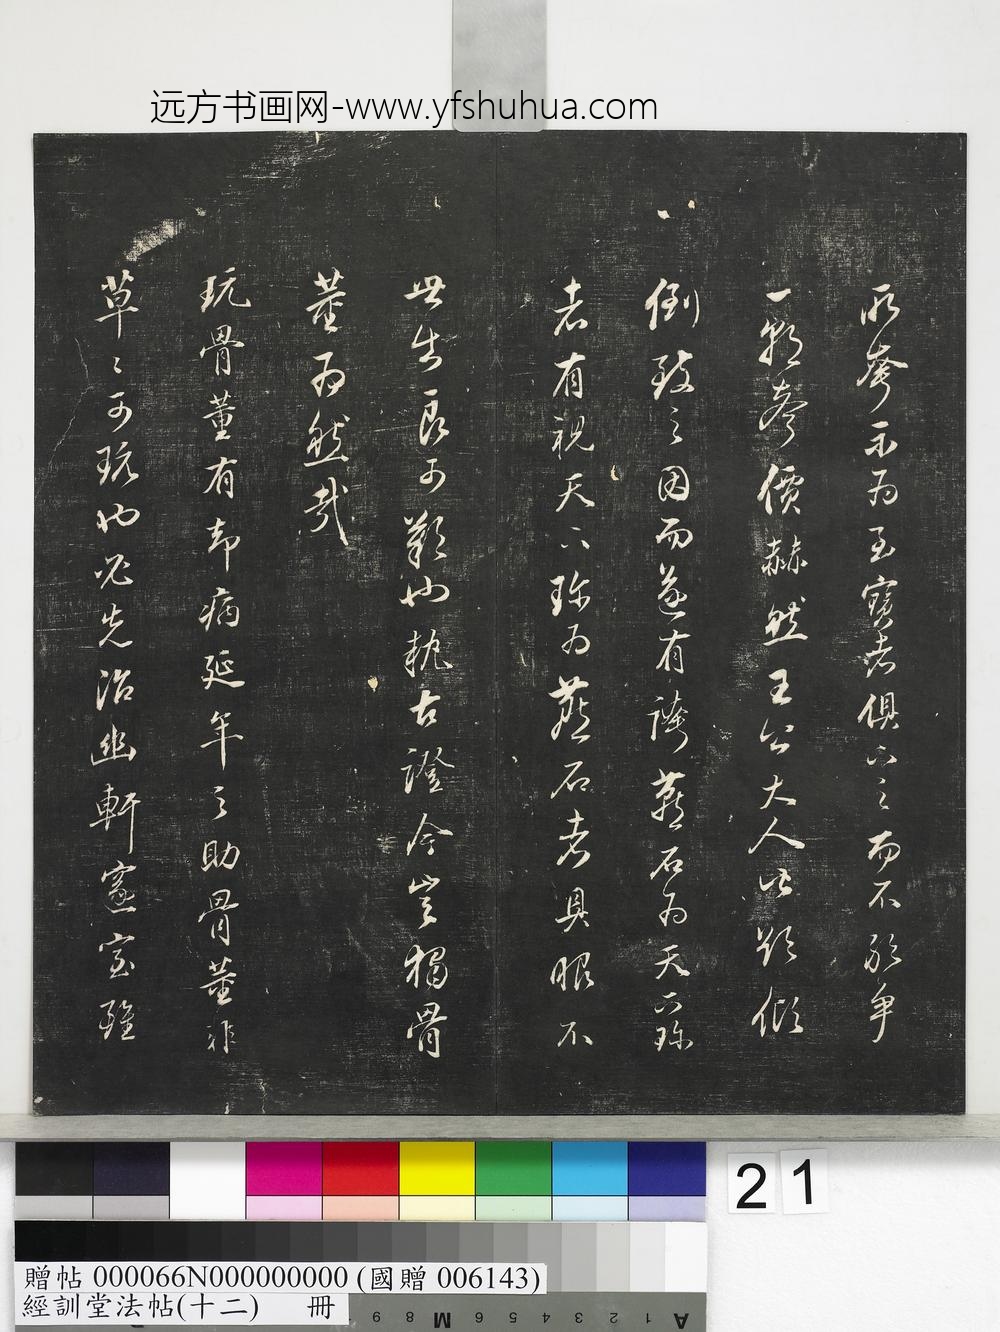 远方书画网-www.yfshuhua.com
所夸示為至寶者俱下之而不能爭
一朝價赫然王公大人皆欲傾
倒致之因而遂有誇燕石為天下珍
者有視天下珍為燕石者具眼不
世出良可歎也執古證今豈獨骨
董為然哉
玩骨董有却病延年之助骨董非
草草可玩也必先治幽軒邃室雖
21
贈帖 000066N000000000 (國贈 006143)
經訓堂法帖(十二) 冊
A 1 2 3 4 5 6 M 8 9